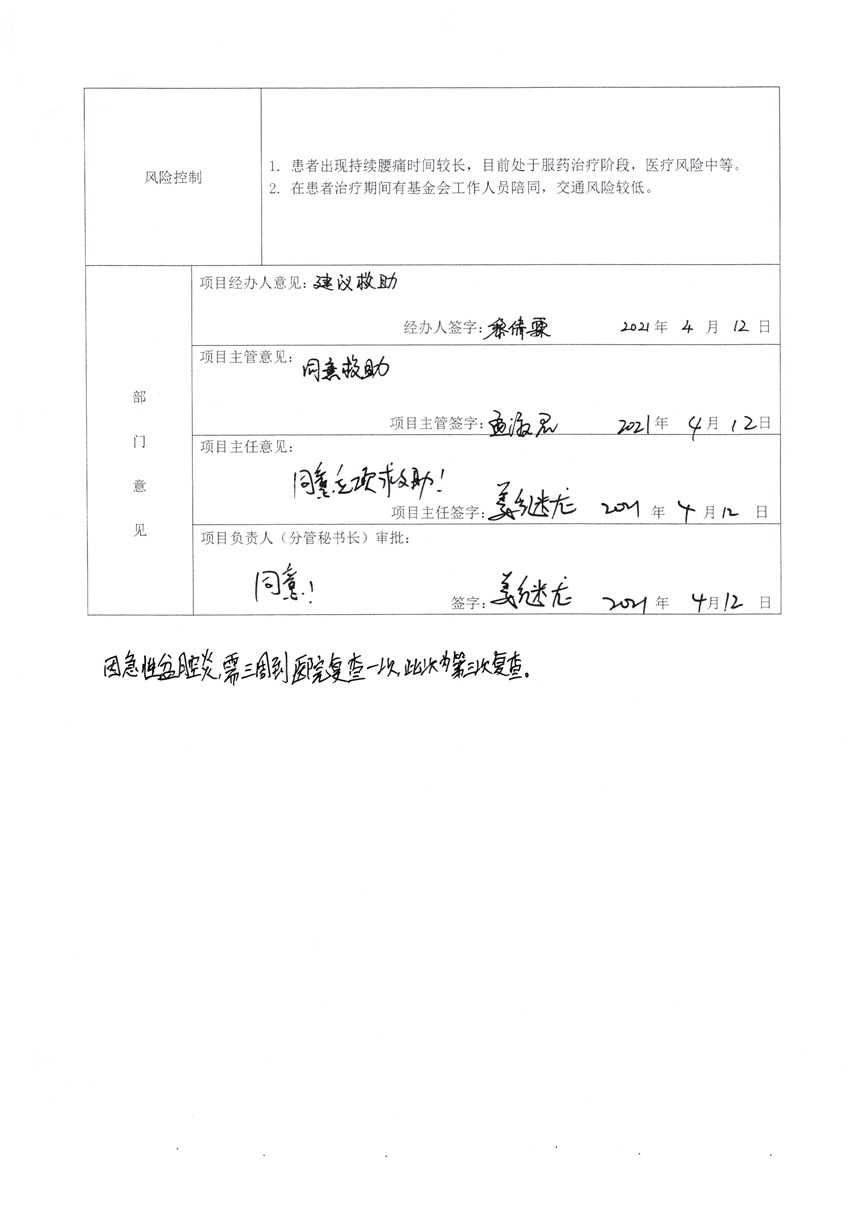 风险控制
1. 患者出现持续腰痛时间较长，目前处于服药治疗阶段，医疗风险中等。
2. 在患者治疗期间有基金会工作人员陪同，交通风险较低。
部门意见
项目经办人意见：建议救助
经办人签字：黎倩霖 2021年 4 月 12 日
项目主管意见：同意救助
项目主管签字：孟海君 2021年 4月 12日
项目主任意见：
同意立项求助！
项目主任签字：姜继龙 2021 年 4 月 12 日
项目负责人（分管秘书长）审批：
同意！
签字：姜继龙 2021 年 4月12 日
因急性盆腔炎，需三周到医院复查一次，此次为第三次复查。